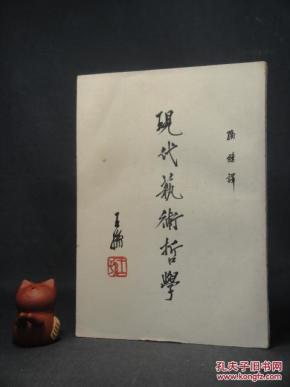 孫旗譯
現代藝術哲學
王無
孔夫子旧书网